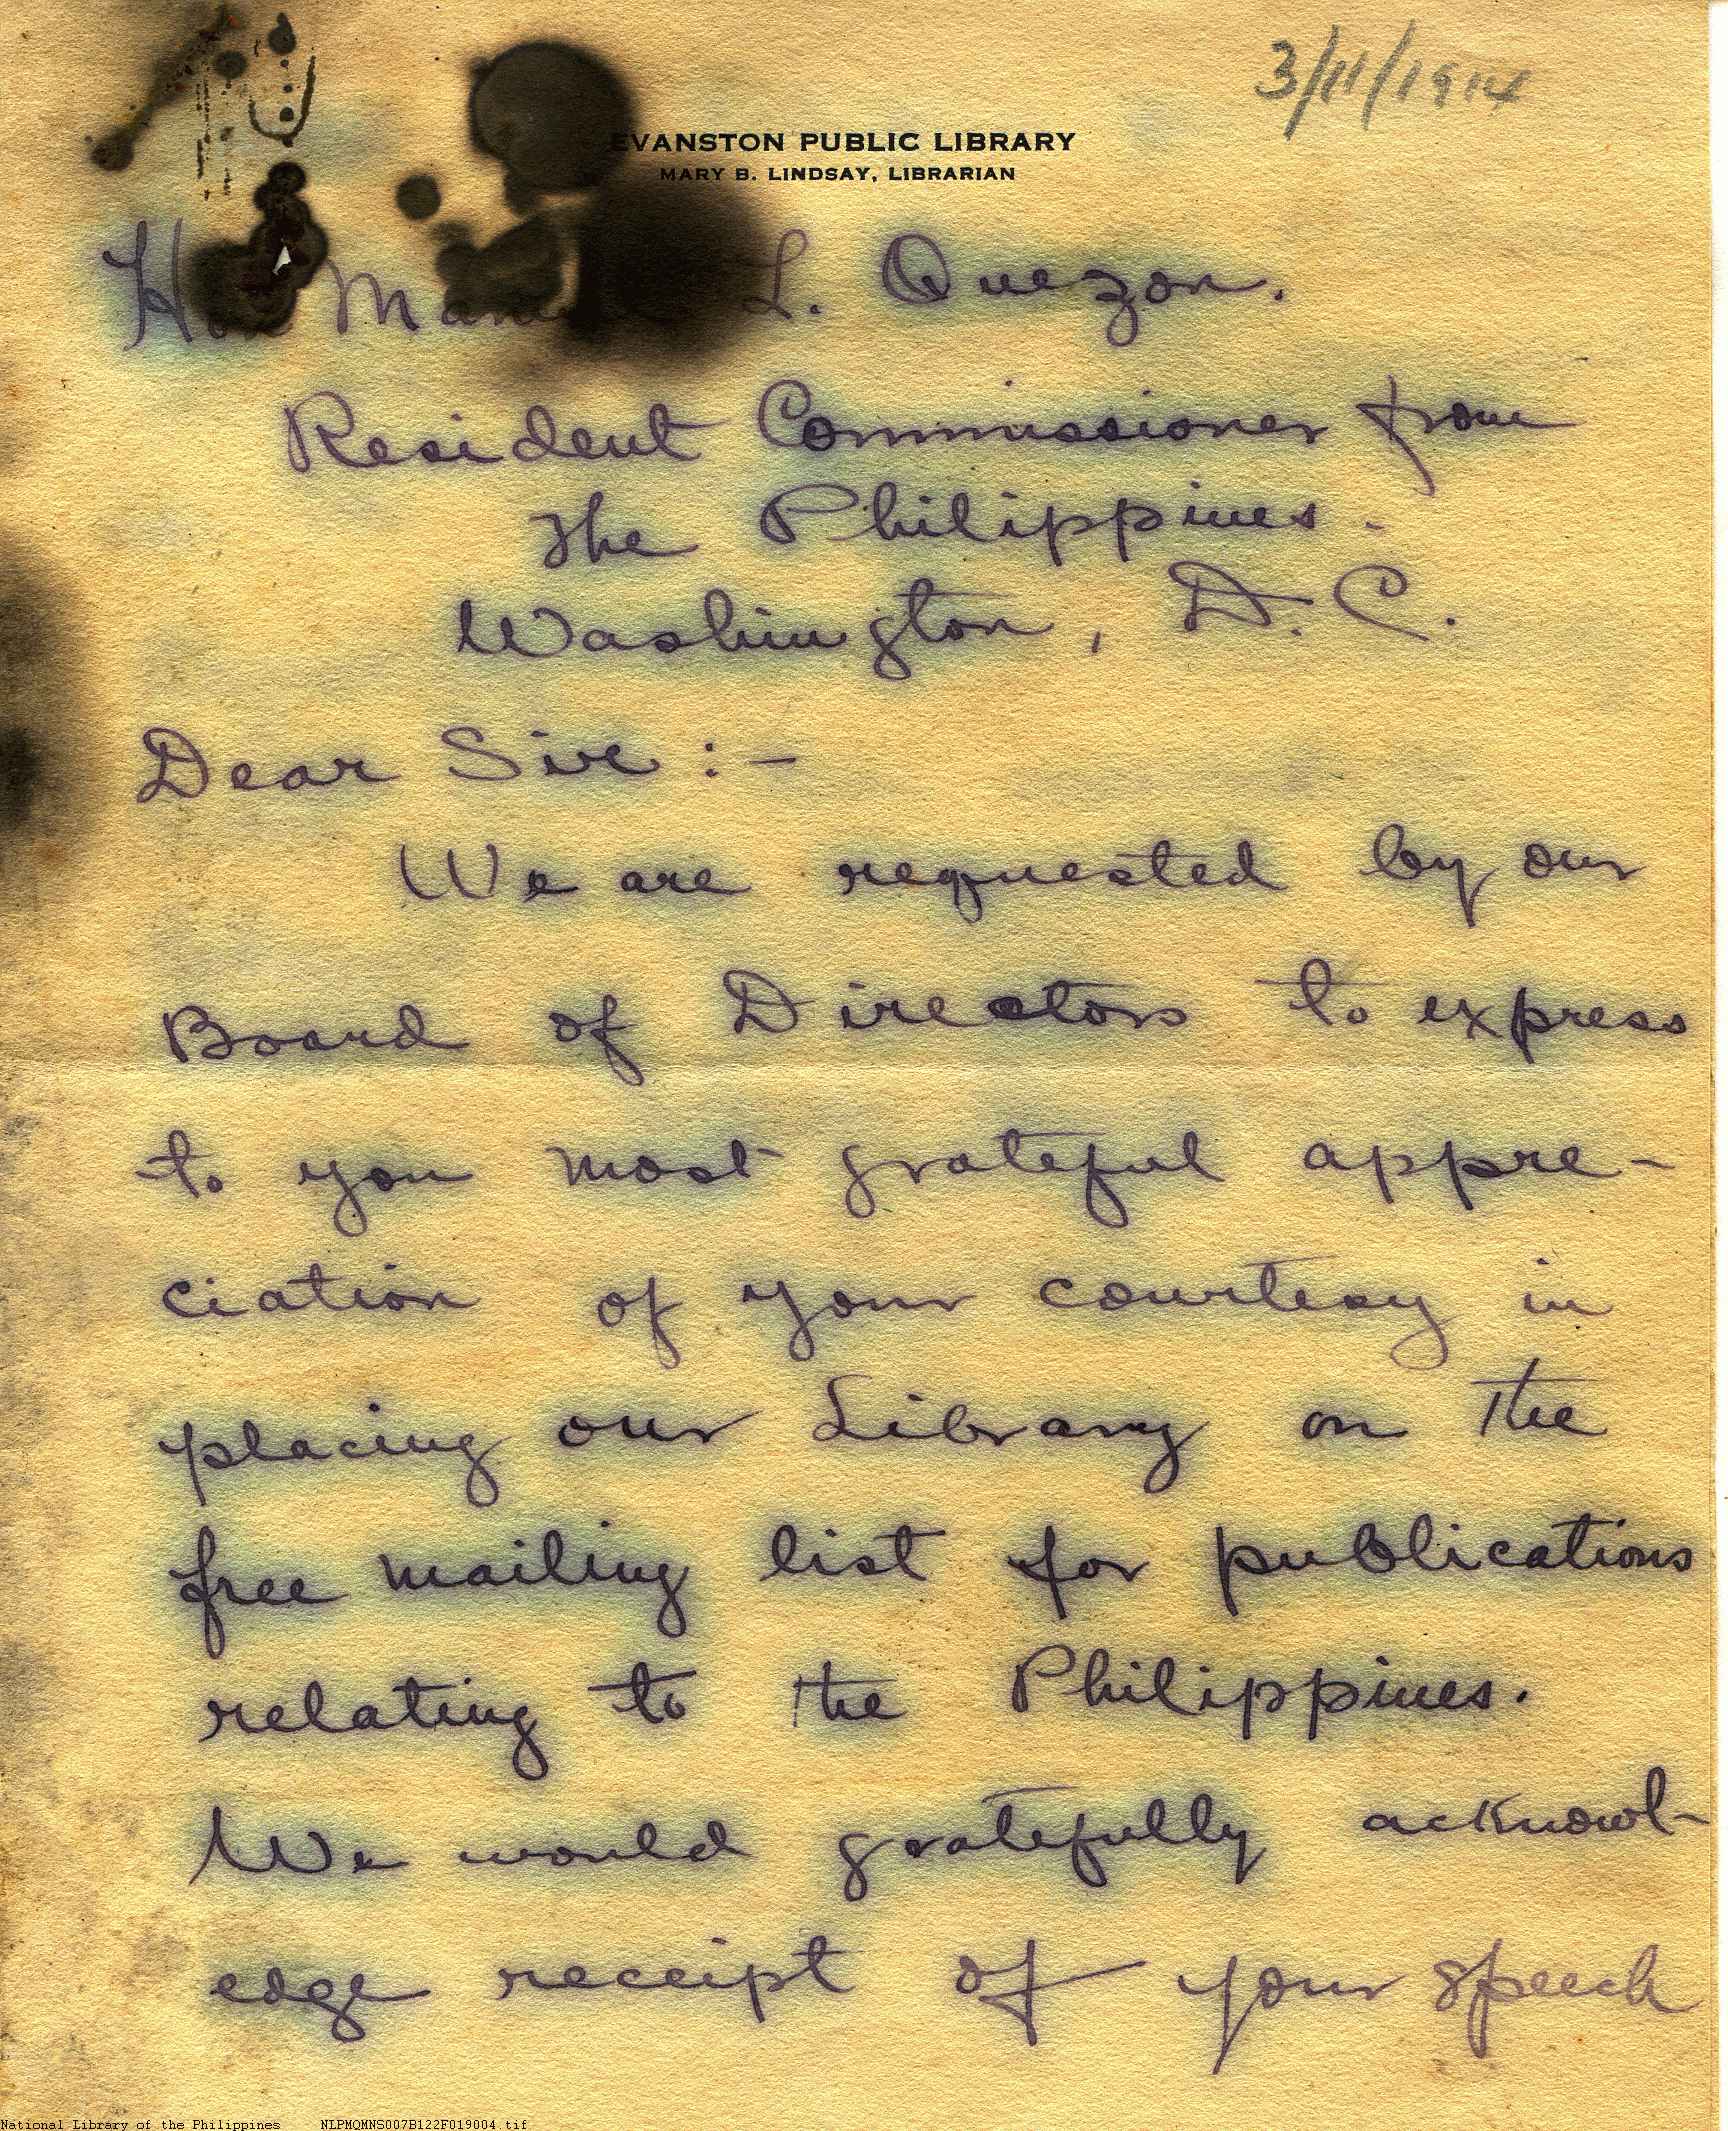 3/11/1914
EVANSTON PUBLIC LIBRARY
MARY B. LINDSAY, LIBRARIAN
Hon Manuel L. Quezon.
Resident Commissioner from
the Philippines.
Washington, D. C.
Dear Sir :-
We are requested by our
Board of Directors to express
to you most grateful appre-
ciation of your courtesy in
placing our Library on the
free mailing list for publications
relating to the Philippines.
We would gratefully acknowl-
edge receipt of your speech
National Library of the Philippines NLPMQMNS007B122F019004.tif